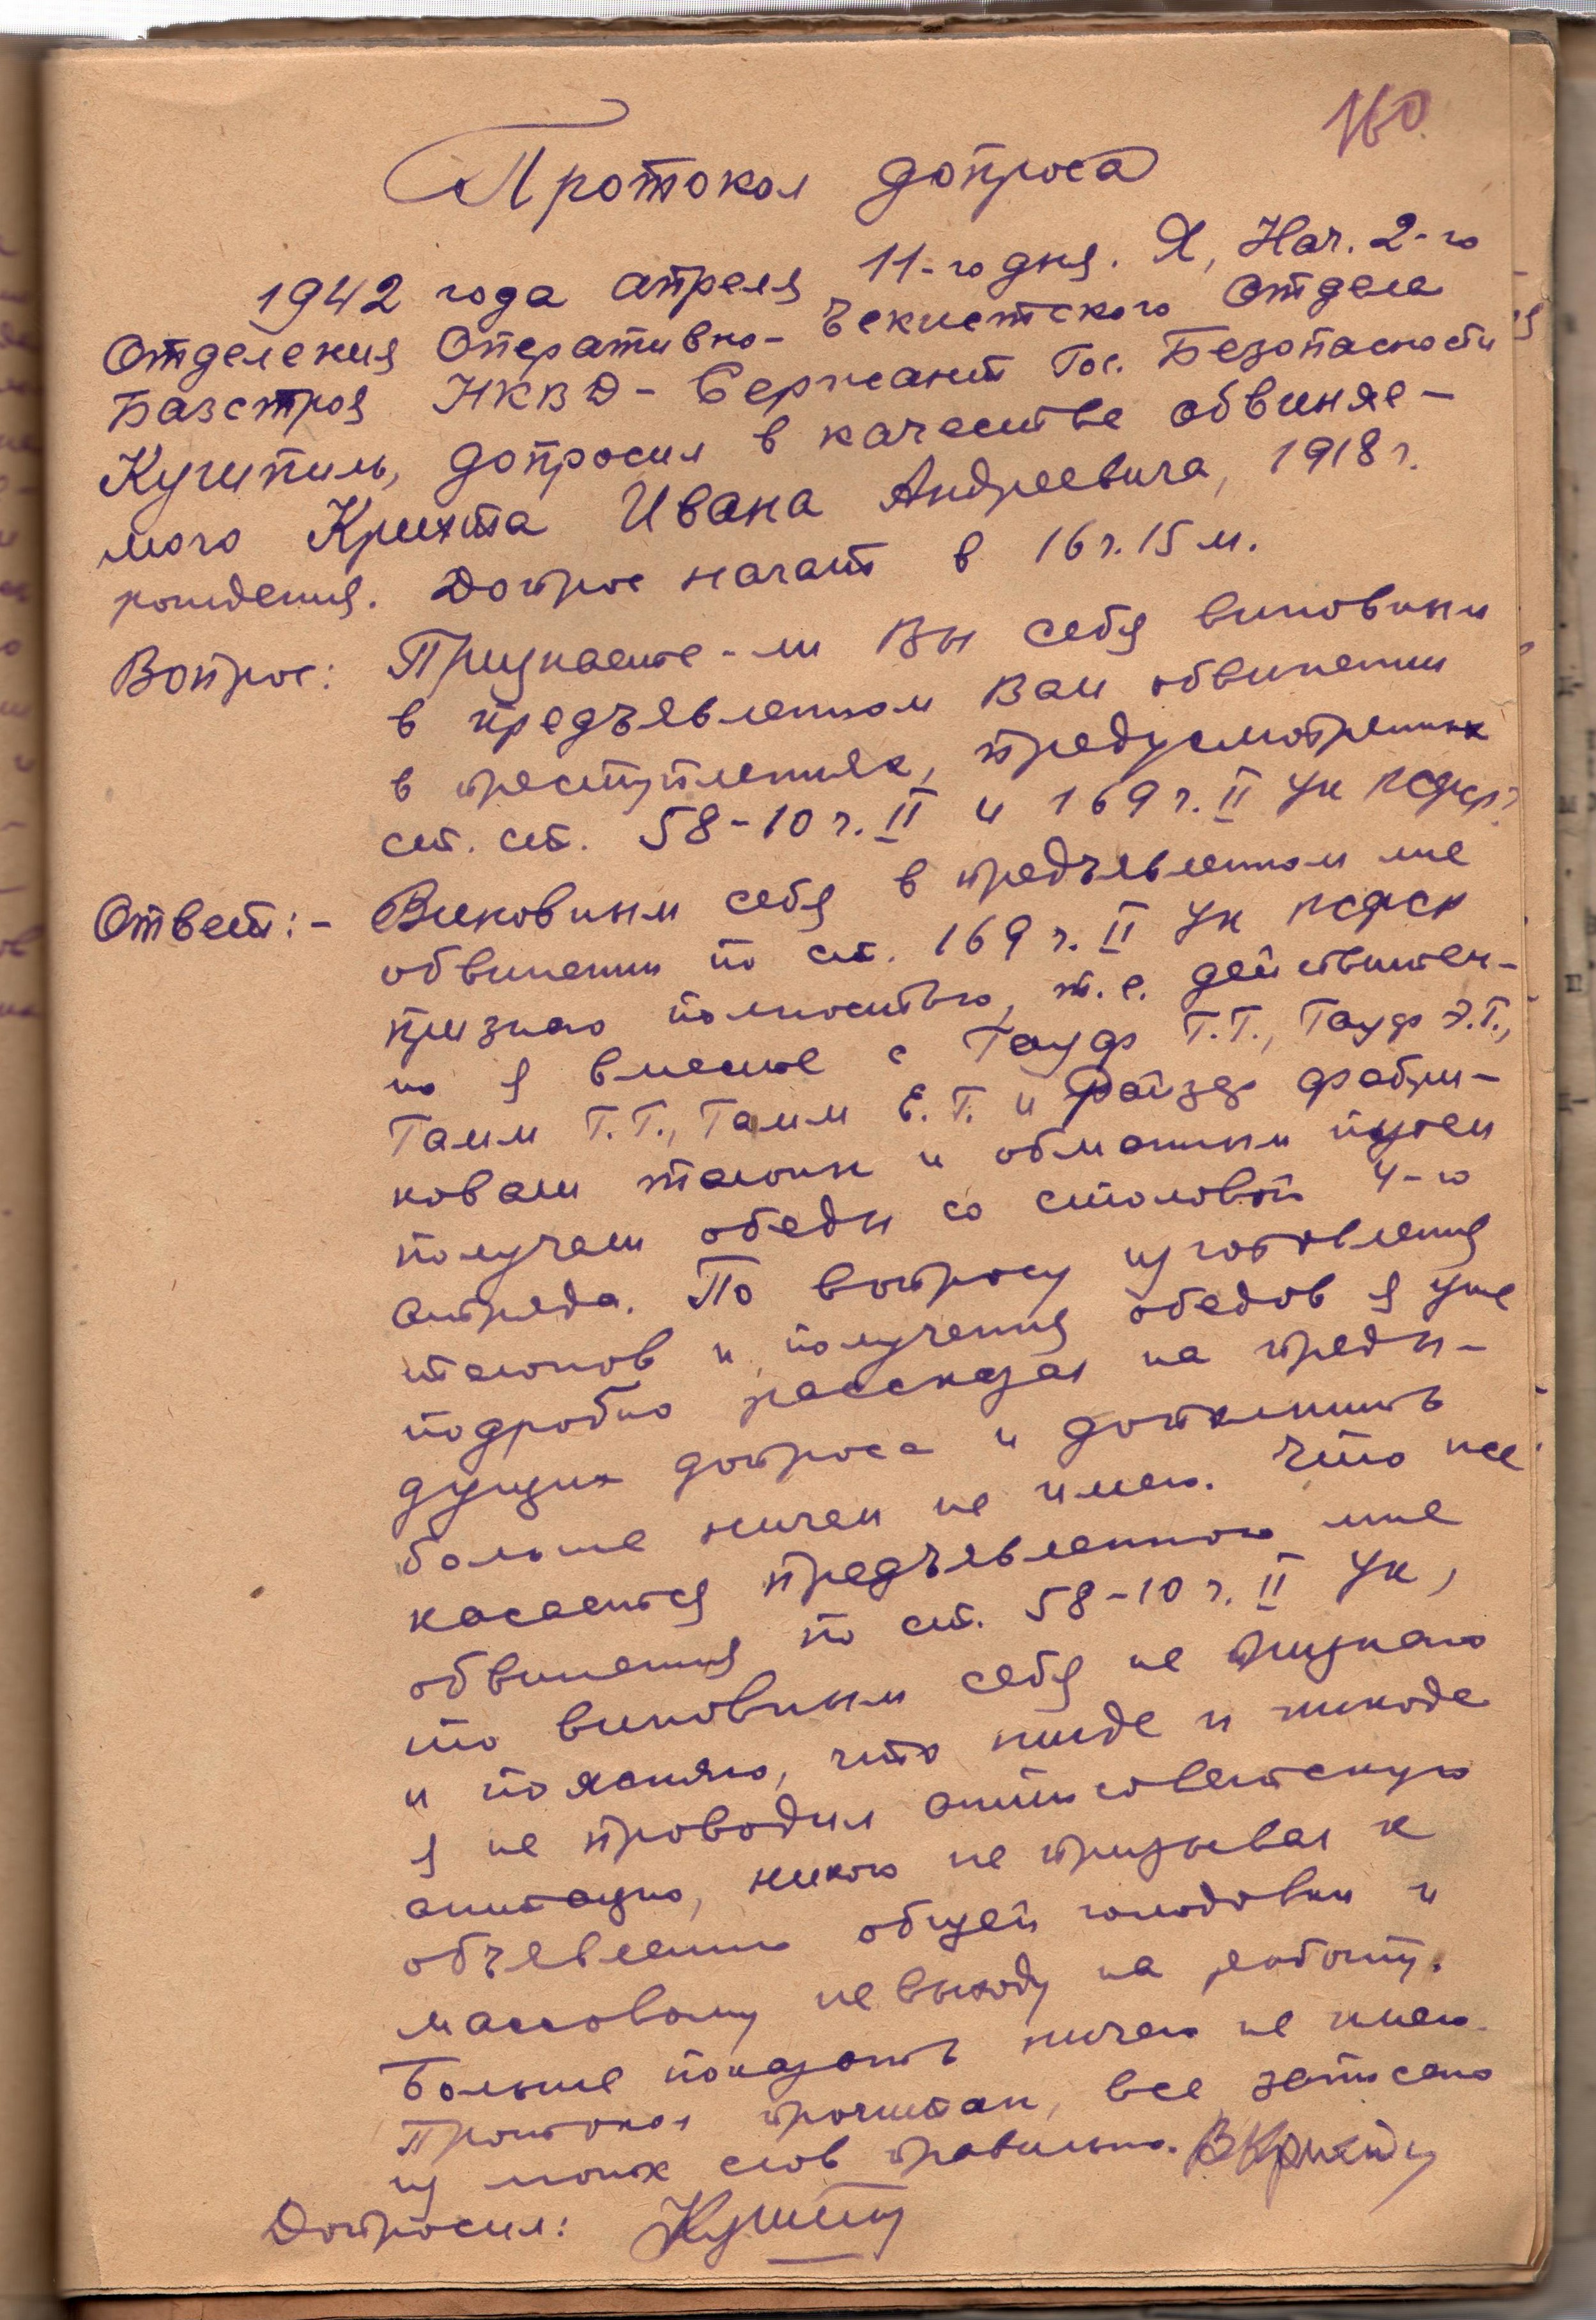 160
Протокол допроса
1942 года апреля 11-го дня. Я, Нач. 2-го
Отделения Оперативно-Чекистского Отдела
Базстроя НКВД - Сержант Гос. Безопасности
допросил в качестве обвиняе-
мого Крихта Ивана Андреевича, 1918 г.
рождения. Допрос начат в 16 ч. 15 м.
Вопрос: Признаете-ли Вы себя виновным
в предъявленном Вам обвинении
в преступлениях, предусмотренных
ст. ст. 58-10 ч. II и 169 ч. II УК РСФСР?
Ответ: - Виновным себя в предъявленном мне
обвинении по ст. 169 ч. II УК РСФСР
признаю полностью, т.е. действитель-
но я вместе с Тауф Г.Г., Тауф Э.Г.,
Гамм Г.Г., Гамм Е.Г. и фабри-
ковали талоны и обманным путем
получали обеды со столовой 4-го
отряда. По вопросу изготовления
талонов и получения обедов я уже
подробно рассказал на преды-
дущих допроса и дополнить
больше ничем не имею. Что же
касается предъявленного мне
обвинения по ст. 58-10 ч. II УК,
то виновным себя не признаю
и поясняю, что нигде и никогда
я не проводил антисоветскую
агитацию, никого не призывал к
объявлению общей голодовки и
массовому невыходу на работу.
Больше показать ничего не имею.
Протокол прочитан, все записано
из моих слов правильно.
Допросил: